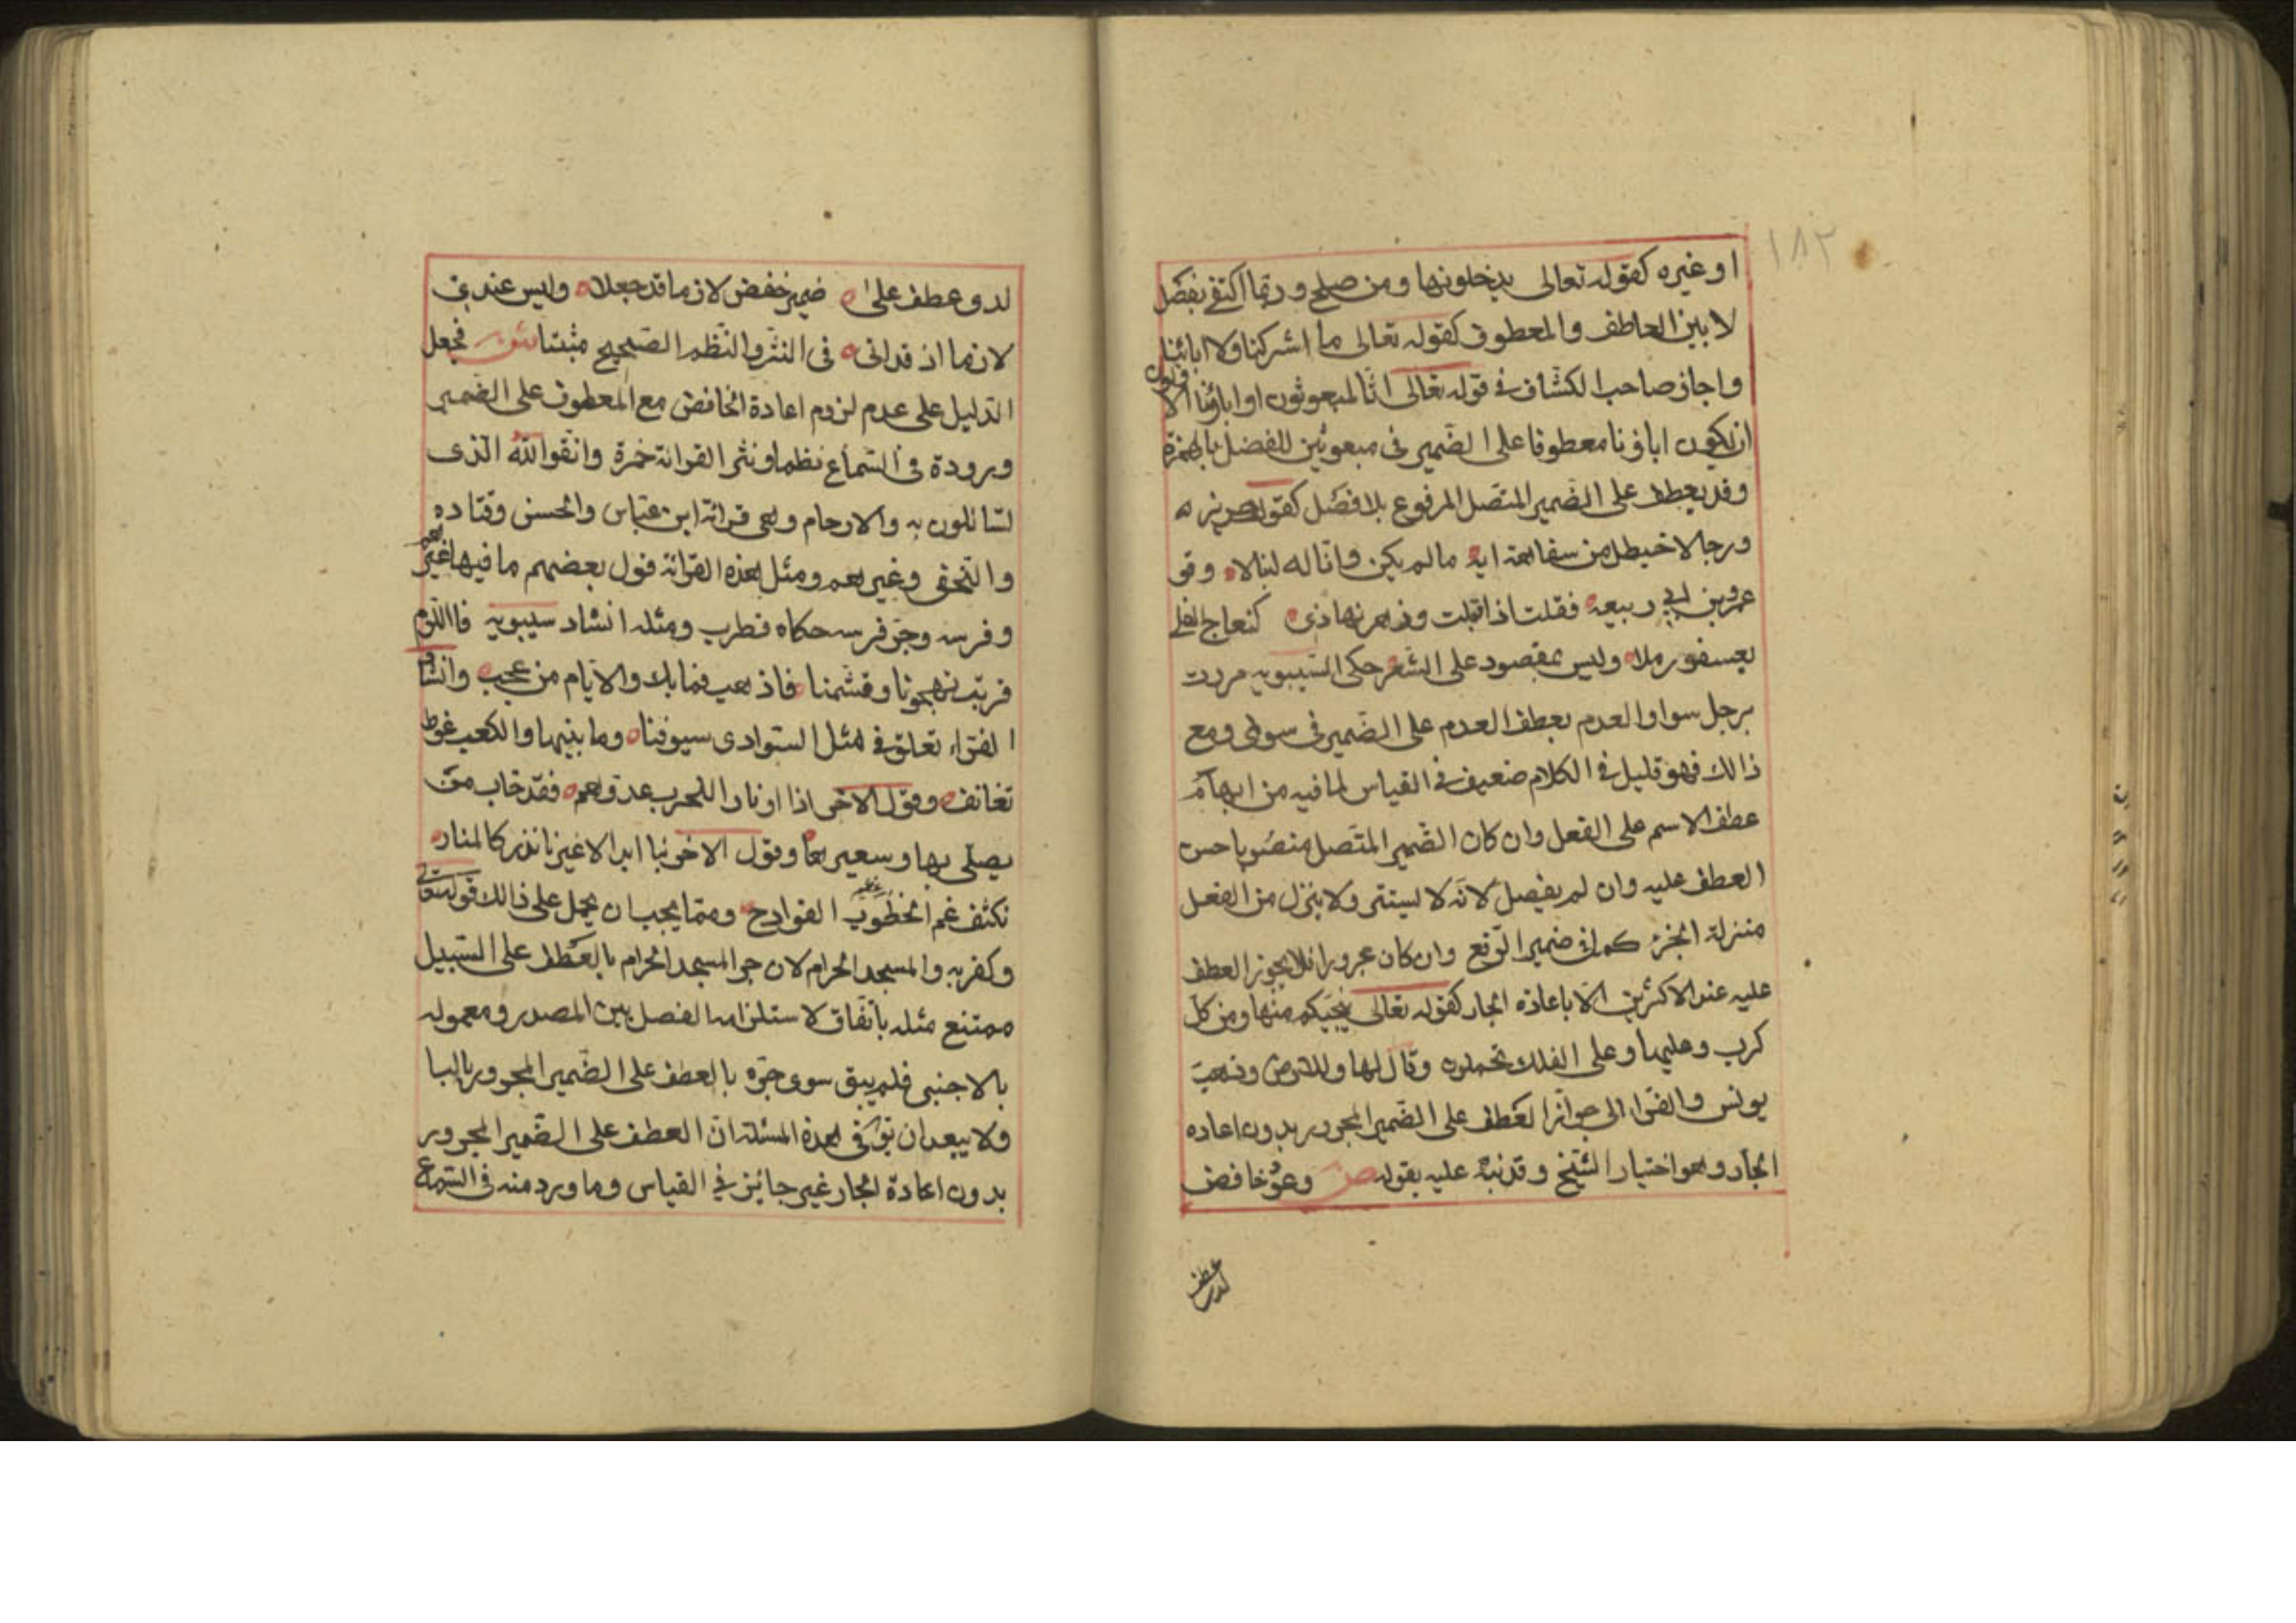 ١٨٢
او غيره كقوله تعالى يدخلونها ومن صلح وربما اكتفى بفصل
لا بين العاطف والمعطوف كقوله تعالى ما اشركنا ولا اباؤنا
واجاز صاحب الكشاف في قوله تعالى ائنا لمبعوثون او اباؤنا الاولون
ان يكون اباؤنا معطوفا على الضمير في مبعوثين للفصل بالهمزة
وقد يعطف على الضمير المتصل المرفوع بلا فصل كقول جرير ه
ورجا الاخيطل من سفاهة رايه ما لم يكن واب له لينالا وقو
عمرو بن ابي ربيعه فقلت اذ اقبلت وزهر تهادى كنعاج الفلا
تعسفن رملا وليس بمقصود على الشعر حكى السيبويه مررت
برجل سواوالعدم بعطف العدم على الضمير في سوى ومع
ذالك فهو قليل في الكلام ضعيف في القياس لما فيه من ايهام
عطف الاسم على الفعل وان كان الضمير المتصل منصوبا حسن
العطف عليه وان لم يفصل لانه لا يستتر ولا ينزل من الفعل
منزلة الجزء كما في ضمير الرفع وان كان مجرورا فلا يجوز العطف
عليه عند الاكثرين الا باعاده الجار كقوله تعالى ينجيكم منها ومن كل
كرب وعليها وعلى الفلك تحملون وقال لها وللارض وذهب
يونس والفرا الى جواز العطف على الضمير المجرور بدون اعاده
الجار وهو اختيار الشيخ وقد نبه عليه بقوله ص وعود خافض
لدى عطف
لدى عطف على ضمير خفض لازما قد جعلا وليس عندي
لازما اذ قد اتى في النثر والنظم الصحيح مثبتا ش فجعل
الدليل على عدم لزوم اعادة الخافض مع المعطوف على الضمير
وبروده في السماع نظما ونثرا لقرائة حمزة واتقوا الله الذى
تسائلون به والارحام وهى قرائة ابن عباس والحسن وقتاده
والنخعى وغيرهم ومثل هذه القرائة قول بعضهم ما فيها غيره
وفرسه وجر فرسه حكاه قطرب ومثله انشاد سيبويه فاليوم
قربت تهجونا وتشتمنا فاذهب فما بك والايام من عجب وانشا
الفراء تعلق في مثل السوادى سيوفنا وما بينها والكعب غوط
نفانف وقول الاخر اذا اوقدوا نارا للحرب عدوهم فقد خاب من
يصلى بها وسعيرها وقول الاخر بنا ابدا لا غيرنا تدرك المنا
تكشف غم الخطوب الفوادح ومما يجب ان يحمل على ذالك قوله تعالى
وكفر به والمسجد الحرام لان جر المسجد الحرام بالعطف على السبيل
ممتنع مثله باتفاق لاستلزامه الفصل بين المصدر ومعموله
بالاجنبى فلم يبق سوى جره بالعطف على الضمير المجرور بالبا
ولا يبعد ان يقال في هذه المسئلة ان العطف على الضمير المجرور
بدون اعادة الجار غير جائز في القياس وما ورد منه في السماع